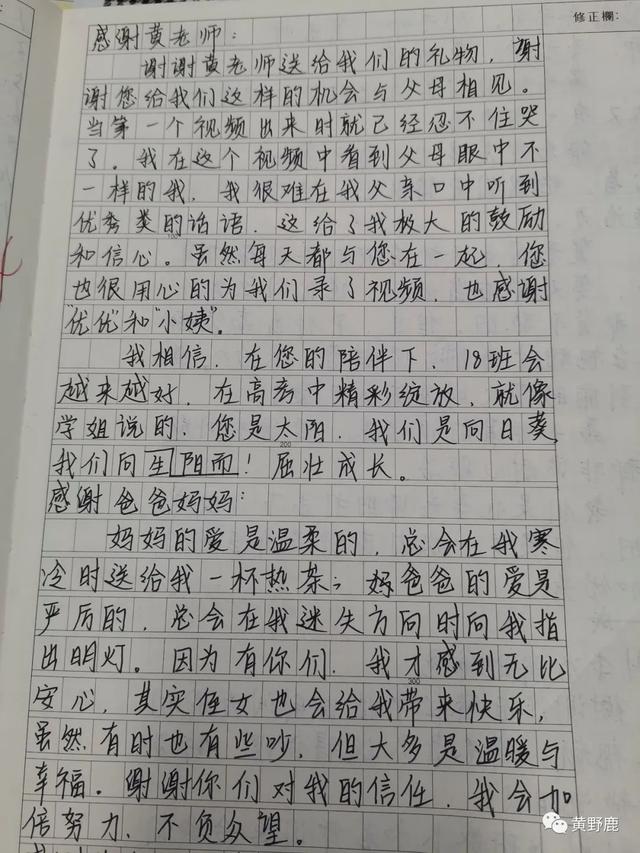 修正欄:
感谢黄老师:
谢谢黄老师送给我们的礼物，谢
谢您给我们这样的机会与父母相见。
当第一个视频出来时就已经忍不住哭
了。我在这个视频中看到父母眼中不
一样的我，我很难在我父亲口中听到
优秀类的话语，这给了我极大的鼓励
和信心。虽然每天都与您在一起，您
也很用心的为我们录了视频，也感谢
"优优"和"小姨"。
我相信，在您的陪伴下，18班会
越来越好，在高考中精彩绽放，就像
学姐说的，您是太阳，我们是向日葵
200
我们向生阳而！屈壮成长。
感谢爸爸妈妈:
妈妈的爱是温柔的，总会在我寒
冷时送给我一杯热茶；妈爸爸的爱是
严厉的，总会在我迷失方向时向我指
出明灯。因为有你们，我才感到无比
300
安心，其实侄女也会给我带来快乐，
虽然有时也有些吵，但大多是温暖与
幸福。谢谢你们对我的信任，我会加
倍努力，不负众望。
黄野鹿